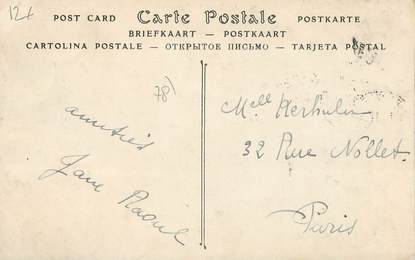 12f
POST CARD Carte Postale POSTKARTE
BRIEFKAART — POSTKAART
CARTOLINA POSTALE — ОТКРЫТОЕ ПИСЬМО — TARJETA POSTAL
78)
amitiés
Jane Raoul
Melle
32 Rue Nollet
Paris